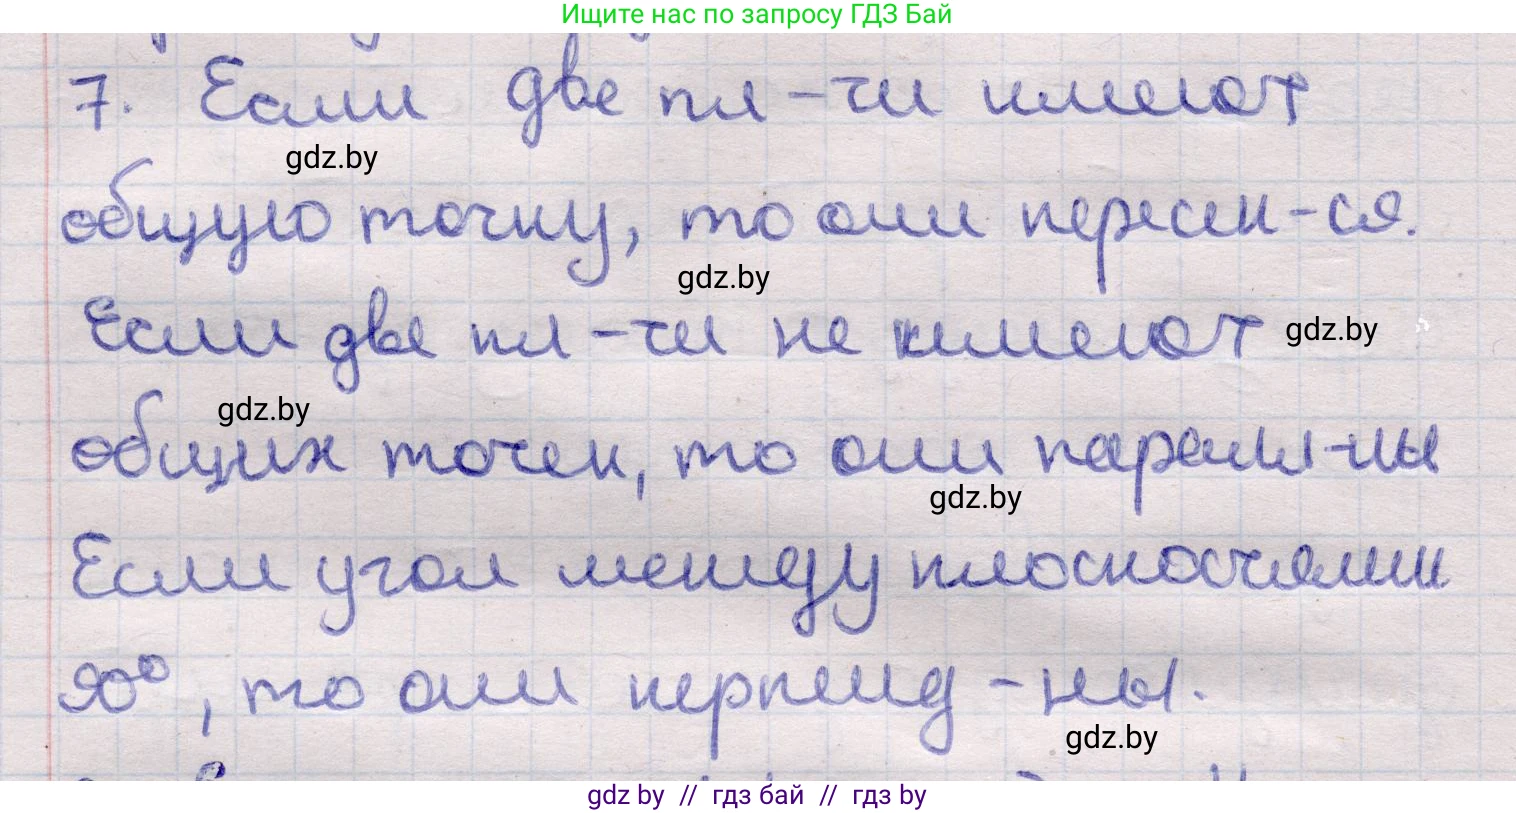 Ищите нас по запросу ГДЗ Бай
7. Если две пл-ти имеют
gdz.by
общую точку, то они пересек-ся.
gdz.by
Если две пл-ти не имеют gdz.by
gdz.by
общих точек, то они паралл-ны
gdz.by
Если угол между плоскостями
90°, то они перпенд-ны.
gdz.by
gdz by // гдз бай // гдз by